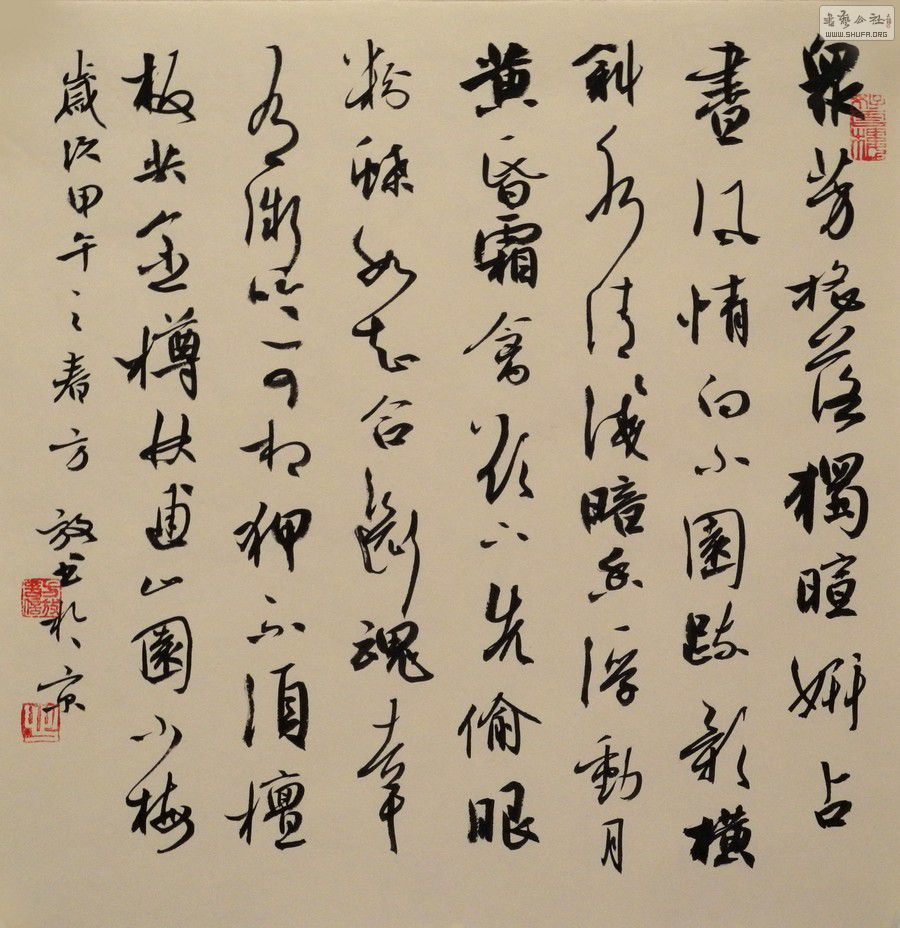 眾芳摇落獨暄妍占
盡風情向小園疏影橫
斜水清淺暗香浮動月
黄昏霜禽欲下先偷眼
粉蝶如知合斷魂幸
有微吟可相狎不須檀
板共金樽林逋山園小梅
歲次甲午之春方放书於京
書藝公社
WWW.SHUFA.ORG